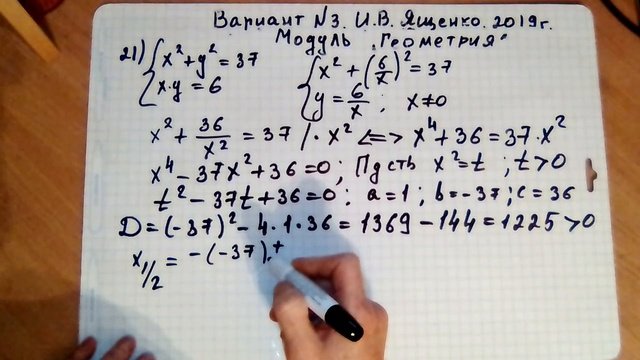 Вариант №3. И.В. Ященко. 2019г.
Модуль „Геометрия"
21) { x² + y² = 37
x·y = 6
{ x² + (6/x)² = 37
y = 6/x ; x≠0
x² + 36/x² = 37 /· x² <=> x⁴ + 36 = 37·x²
x⁴ - 37x² + 36 = 0 ; Пусть x² = t ; t > 0
t² - 37t + 36 = 0 : a = 1 ; b = -37 ; c = 36
D = (-37)² - 4·1·36 = 1369 - 144 = 1225 > 0
x₁/₂ = -(-37) +